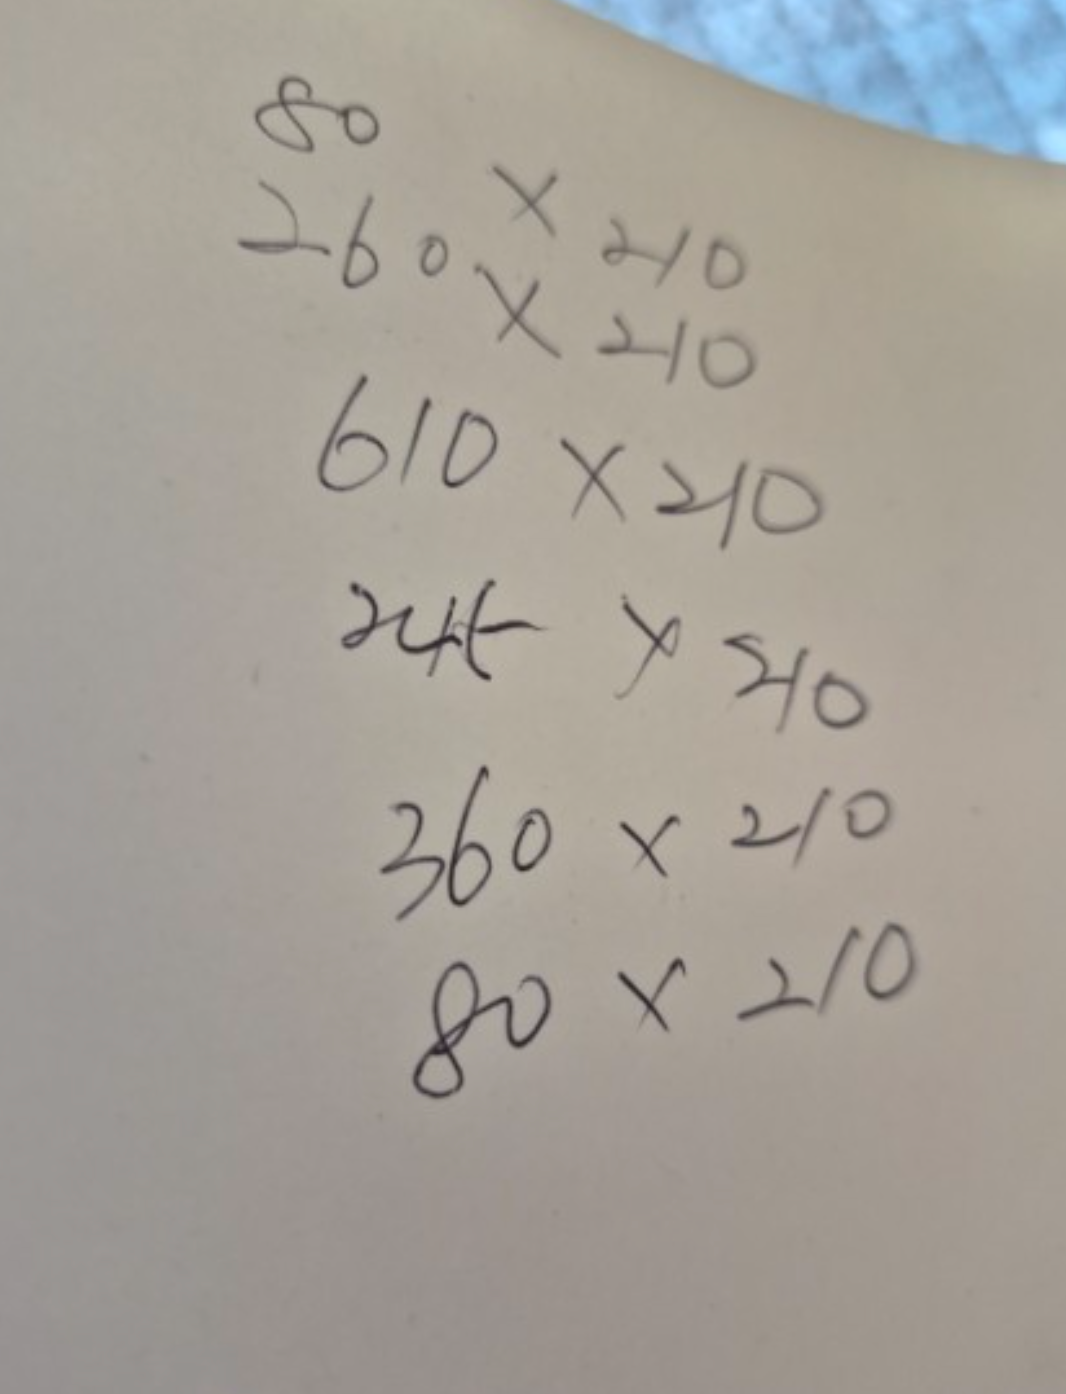 80 × 210
260 × 210
610 × 210
245 × 210
360 × 210
80 × 210